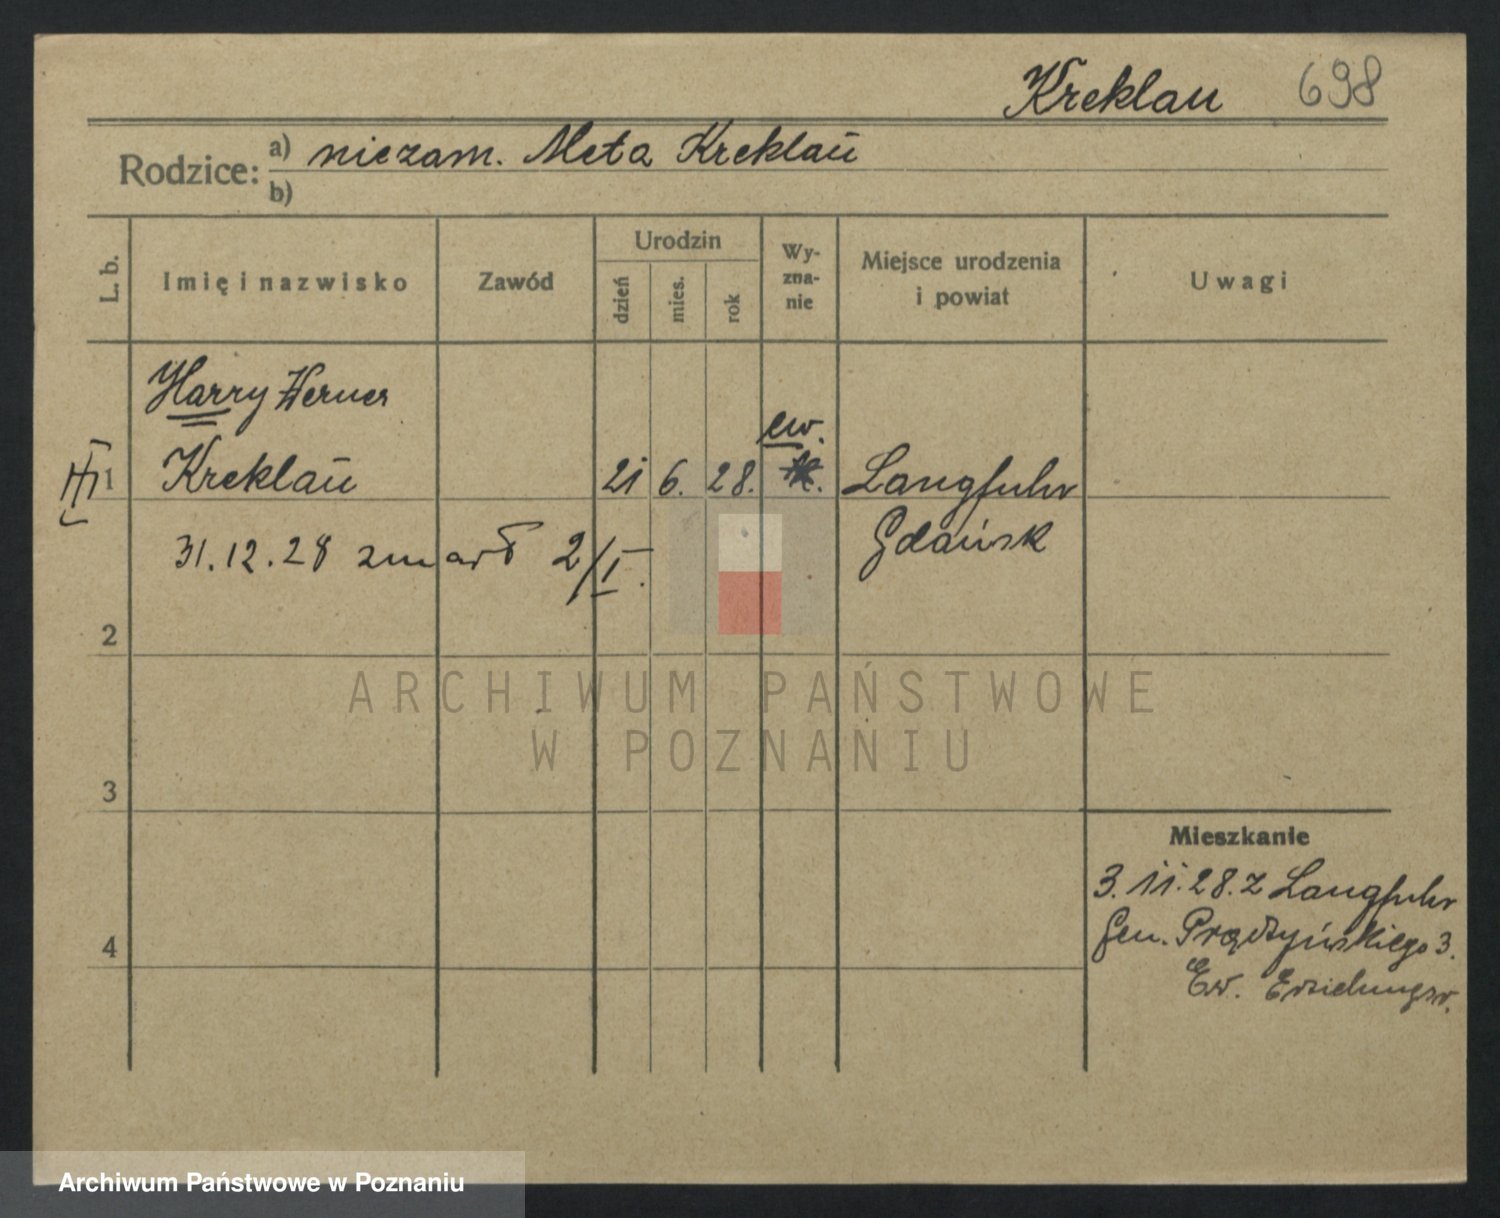 Kreklau 698
Rodzice: a) niezam. Meta Kreklaŭ
b)
L. b. Imię i nazwisko Zawód Urodzin dzień mies. rok Wy-zna-nie Miejsce urodzenia i powiat Uwagi
Harry Werner
ew.
1 Kreklaŭ 21 6. 28. Langfuhr
31.12.28 zmarł 2/I. Gdańsk
2
ARCHIWUM PAŃSTWOWE
W POZNANIU
3
Mieszkanie
3.11.28. z Langfuhr
Gen. Prądzyńskiego 3.
4
Ev. Erziehungsv.
Archiwum Państwowe w Poznaniu